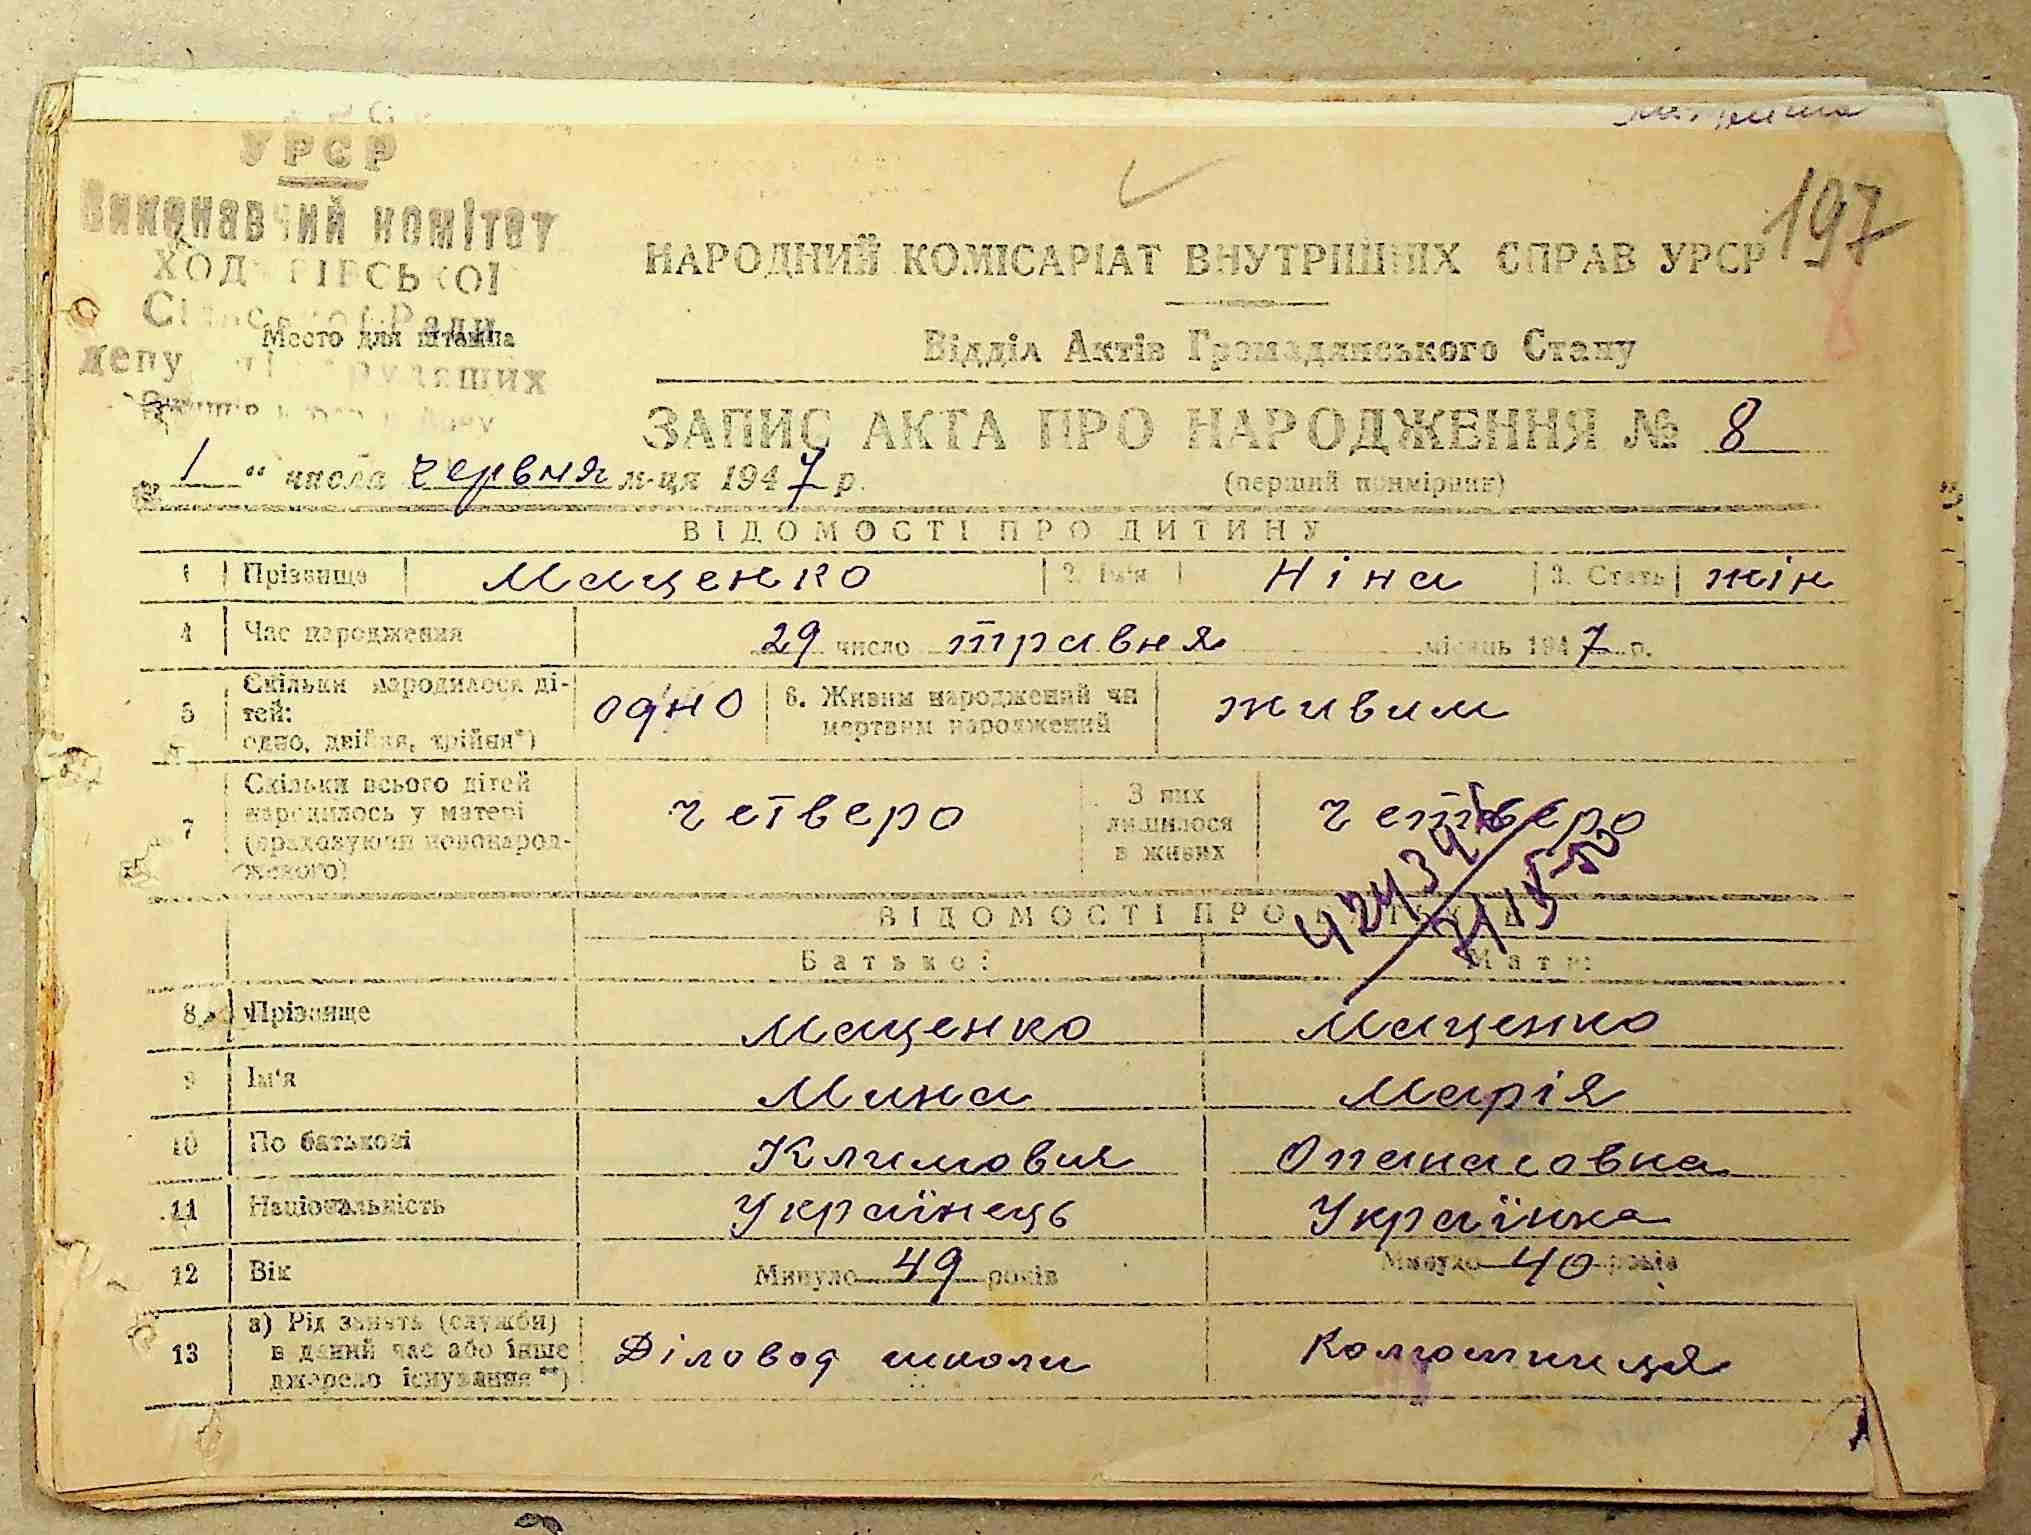 УРСР
Виконавчий комітет
Місто для штампа
197
НАРОДНИЙ КОМІСАРІАТ ВНУТРІШНІХ СПРАВ УРСР
8
Відділ Актів Громадянського Стану
ЗАПИС АКТА ПРО НАРОДЖЕННЯ № 8
1 " числа червня м-ця 1947 р.
(перший примірник)
ВІДОМОСТІ ПРО ДИТИНУ
1 Прізвище Маценко 2. Ім'я Ніна 3. Стать жін
4 Час народження 29 число травня місяць 1947 р.
5 Скільки народилося ді-
тей:
одно, двійня, трійня*) одно 6. Живим народжений чи
мертвим народжений живим
7 Скільки всього дітей
народилось у матері
(враховуючи новонарод-
женого) четверо З них
лишилося
в живих четверо
ВІДОМОСТІ ПРО
Батько: Мати:
8 Прізвище Маценко Маценко
9 Ім'я Мина Марія
10 По батькові Климович Опанасовна
11 Національність Українець Українка
12 Вік Минуло 49 років Минуло 40 років
13 а) Рід занять (служби)
в даний час або інше
джерело існування**) Діловод школи Колгоспниця